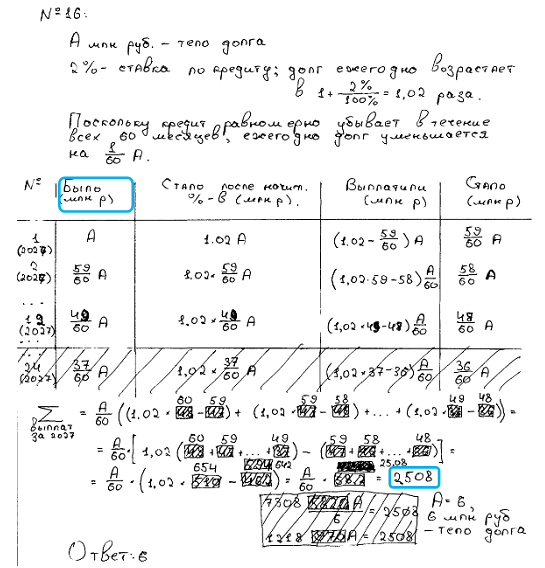 №16:
А млн руб. – тело долга
2% – ставка по кредиту; долг ежегодно возрастает
в 1 + 2%/100% = 1,02 раза.
Поскольку кредит равномерно убывает в течение
всех 60 месяцев, ежегодно долг уменьшается
на 1/60 А.
№ Было (млн р) Стало после начит. %-в (млн р). Выплатили (млн р) Стало (млн р)
1 (2027) А 1.02 А (1,02 - 59/60) А 59/60 А
2 (2027) 59/60 А 1.02 × 59/60 А (1,02·59-58) А/60 58/60 А
...
12 (2027) 49/60 А 1.02 × 49/60 А (1,02×49-48) А/60 48/60 А
...
24 (2027) 37/60 А 1,02 × 37/60 А (1,02×37-36) А/60 36/60 А
∑ выплат за 2027 = А/60 ((1,02 × 60 - 59) + (1,02 × 59 - 58) + ... + (1,02 × 49 - 48)) =
= А/60 · [1,02 (60 + 59 + ... + 49) - (59 + 58 + ... + 48)] =
= А/60 · (1,02 × 654 - 642) = А/60 · 25,08 = 2508
А = 6,
6 млн руб
– тело долга
Ответ: 6